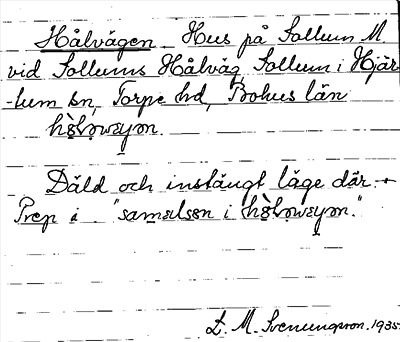 Hålvägen Hus på Sollum M.
vid Sollums Hålväg, Sollum i Hjär-
-tum sn, Torpe hd, Bohus län

Däld och instängt läge där.
Prep i "samɯlsɛn i
L. M. Svenungsson. 1935.